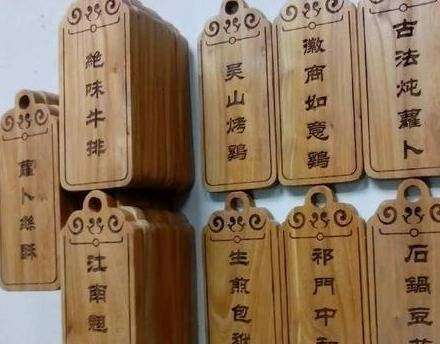 絶味牛排
吴山烤鷄
徽商如意鷄
古法炖蘿卜
蘿卜絲酥
江南翹
生煎包
祁門中
石鍋豆